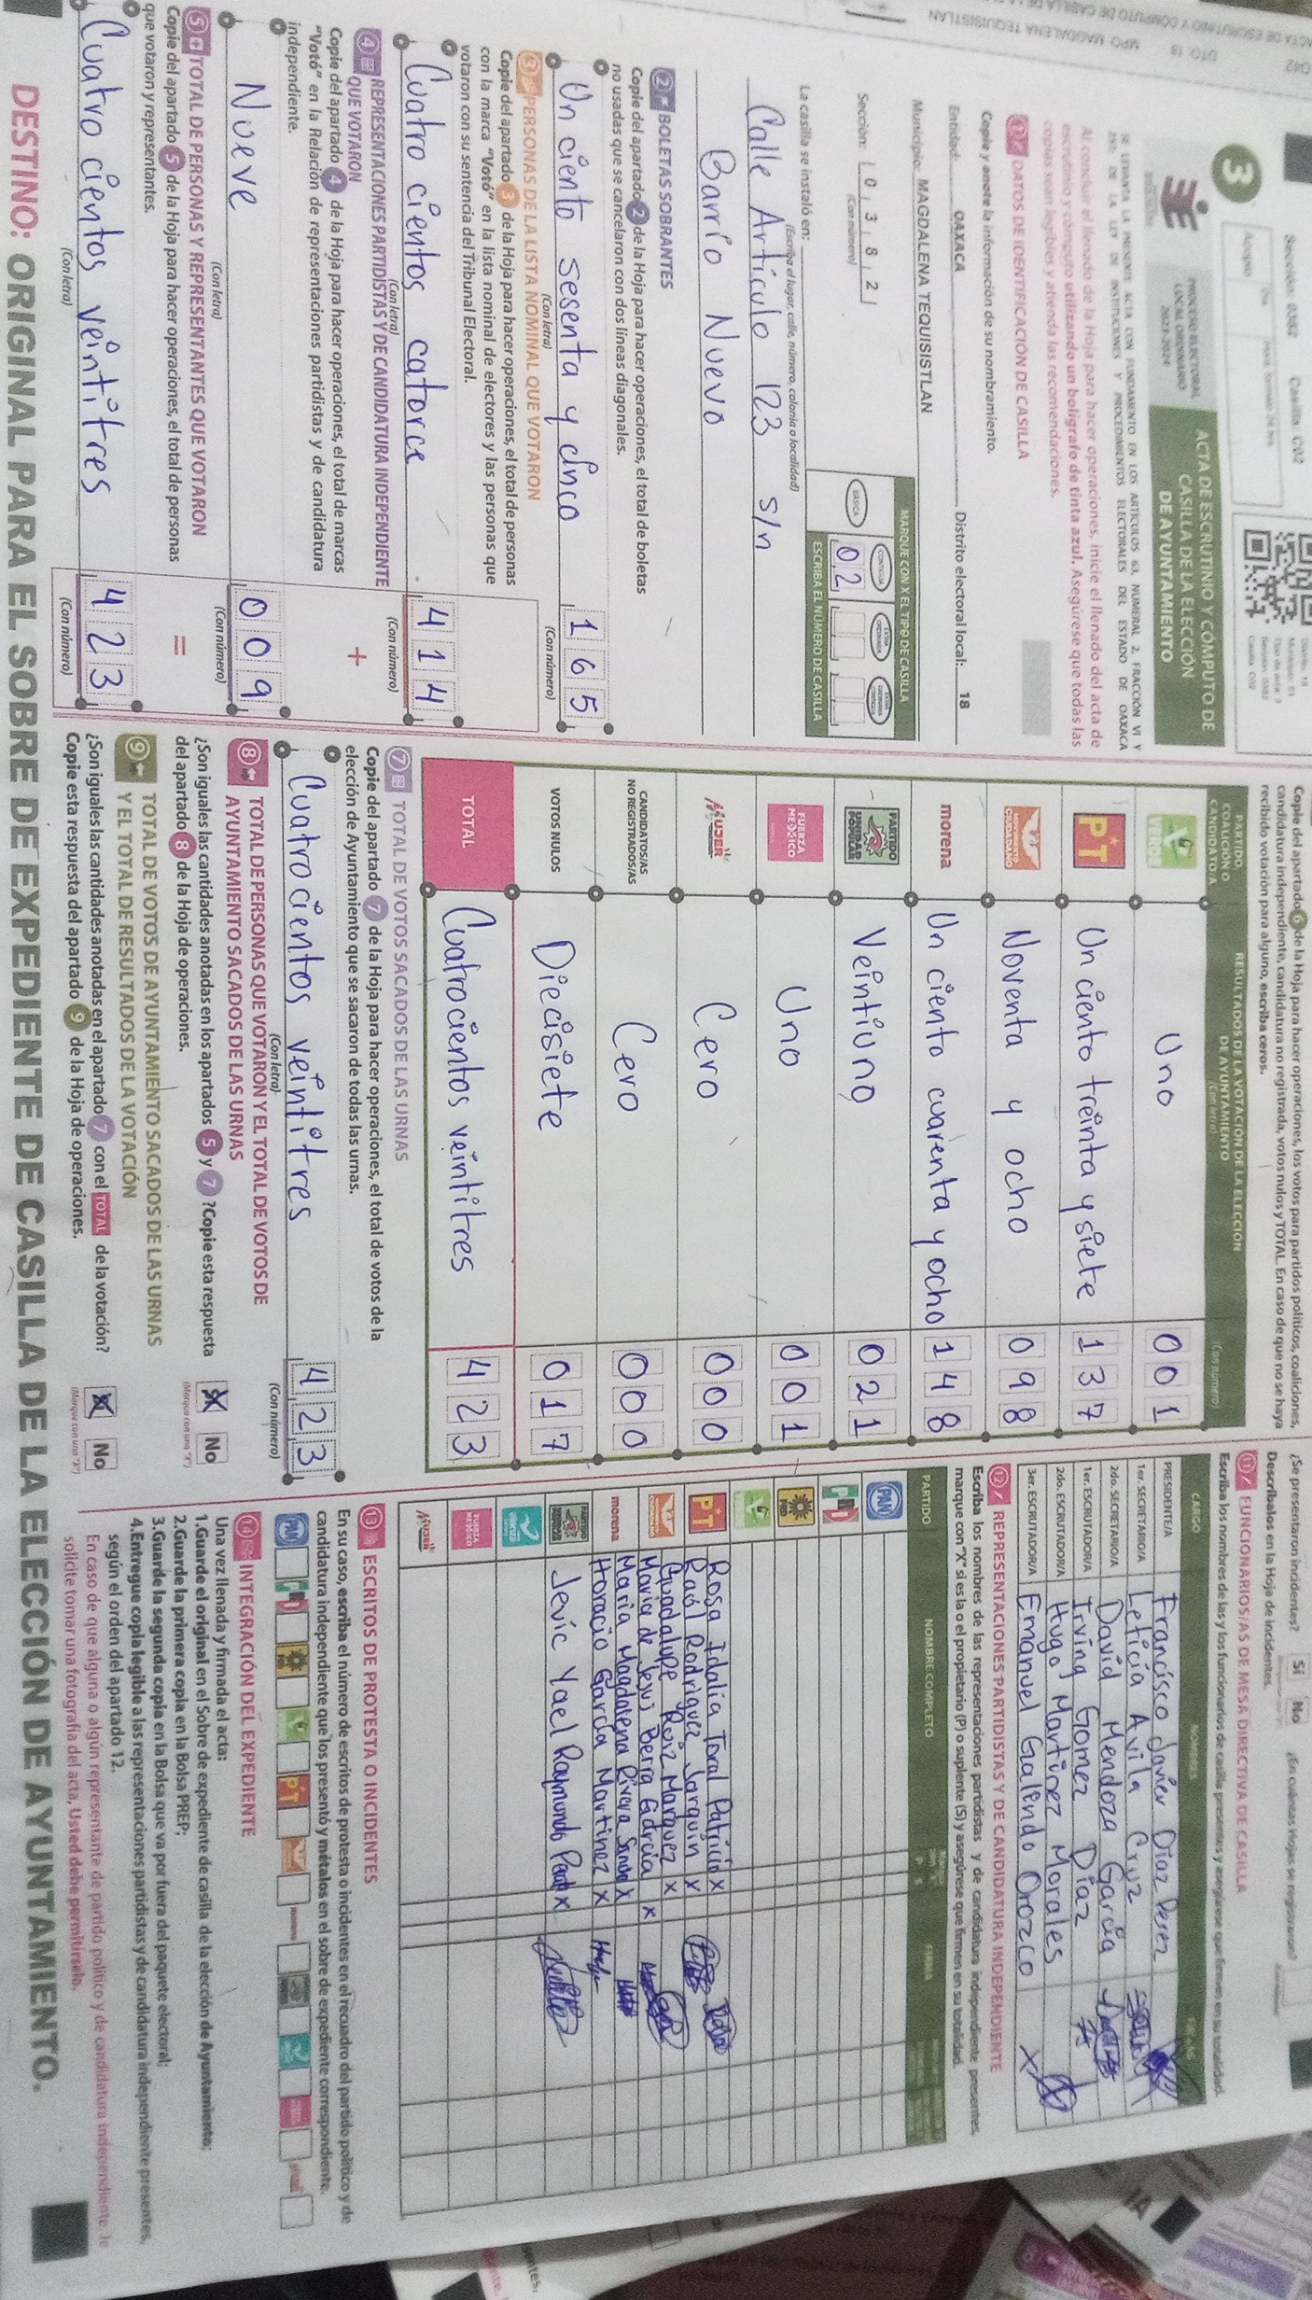 Sección: 0382 Casilla: C02
3
PROCESO ELECTORAL
LOCAL ORDINARIO
2023-2024
ACTA DE ESCRUTINIO Y CÓMPUTO DE
CASILLA DE LA ELECCIÓN
DE AYUNTAMIENTO
SE LEVANTA LA PRESENTE ACTA CON FUNDAMENTO EN LOS ARTÍCULOS 63, NUMERAL 2, FRACCIÓN VI Y
Al concluir el llenado de la Hoja para hacer operaciones, inicie el llenado del acta de
escrutinio y cómputo utilizando un bolígrafo de tinta azul. Asegúrese que todas las
copias sean legibles y atienda las recomendaciones.
1 DATOS DE IDENTIFICACIÓN DE CASILLA
Copie y anote la información de su nombramiento.
Entidad: OAXACA Distrito electoral local: 18
Municipio: MAGDALENA TEQUISISTLAN
Sección: 0 3 8 2
(Con número)
MARQUE CON X EL TIPO DE CASILLA
BÁSICA
02
ESCRIBA EL NÚMERO DE CASILLA
La casilla se instaló en:
(Escriba el lugar, calle, número, colonia o localidad)
Calle Artículo 123 s/n
Barrio Nuevo
2 BOLETAS SOBRANTES
Copie del apartado 2 de la Hoja para hacer operaciones, el total de boletas
no usadas que se cancelaron con dos líneas diagonales.
Un ciento sesenta y cinco 165
(Con letra) (Con número)
3 PERSONAS DE LA LISTA NOMINAL QUE VOTARON
Copie del apartado 3 de la Hoja para hacer operaciones, el total de personas
con la marca "Votó" en la lista nominal de electores y las personas que
votaron con su sentencia del Tribunal Electoral.
Cuatro cientos catorce 414
(Con letra) (Con número)
4 REPRESENTACIONES PARTIDISTAS Y DE CANDIDATURA INDEPENDIENTE
QUE VOTARON
Copie del apartado 4 de la Hoja para hacer operaciones, el total de marcas
"Votó" en la Relación de representaciones partidistas y de candidatura
independiente.
+
Nueve 009
(Con letra) (Con número)
5 TOTAL DE PERSONAS Y REPRESENTANTES QUE VOTARON
Copie del apartado 5 de la Hoja para hacer operaciones, el total de personas
que votaron y representantes.
=
Cuatro cientos veintitres 423
(Con letra) (Con número)
Copie del apartado 6 de la Hoja para hacer operaciones, los votos para partidos políticos, coaliciones,
candidatura independiente, candidatura no registrada, votos nulos y TOTAL. En caso de que no se haya
recibido votación para alguno, escriba ceros.
PARTIDO,
COALICIÓN O
CANDIDATO/A
RESULTADOS DE LA VOTACIÓN DE LA ELECCIÓN
DE AYUNTAMIENTO
(Con letra) (Con número)
VERDE Uno 001
PT Un ciento treinta y siete 137
MOVIMIENTO CIUDADANO Noventa y ocho 098
morena Un ciento cuarenta y ocho 148
PARTIDO UNIDAD POPULAR Veintiuno 021
FUERZA MEXICO Uno 001
MUJER Cero 000
CANDIDATOS/AS
NO REGISTRADOS/AS Cero 000
VOTOS NULOS Diecisiete 017
TOTAL Cuatrocientos veintitres 423
7 TOTAL DE VOTOS SACADOS DE LAS URNAS
Copie del apartado 7 de la Hoja para hacer operaciones, el total de votos de la
elección de Ayuntamiento que se sacaron de todas las urnas.
Cuatrocientos veintitres 423
(Con letra) (Con número)
8 TOTAL DE PERSONAS QUE VOTARON Y EL TOTAL DE VOTOS DE
AYUNTAMIENTO SACADOS DE LAS URNAS
¿Son iguales las cantidades anotadas en los apartados 5 y 7 ? Copie esta respuesta
del apartado 8 de la Hoja de operaciones.
X No
(Marque con una "X")
9 TOTAL DE VOTOS DE AYUNTAMIENTO SACADOS DE LAS URNAS
Y EL TOTAL DE RESULTADOS DE LA VOTACIÓN
¿Son iguales las cantidades anotadas en el apartado 7 con el TOTAL de la votación?
Copie esta respuesta del apartado 9 de la Hoja de operaciones.
X No
(Marque con una "X")
¿Se presentaron incidentes? Sí No
Descríbalos en la Hoja de incidentes.
11 FUNCIONARIOS/AS DE MESA DIRECTIVA DE CASILLA
Escriba los nombres de las y los funcionarios de casilla presentes y asegúrese que firmen en su totalidad.
CARGO NOMBRES FIRMAS
PRESIDENTE/A Francisco Javier Díaz Perez
1er. SECRETARIO/A Leticia Avila Cruz
2do. SECRETARIO/A David Mendoza García
1er. ESCRUTADOR/A Irving Gomez Díaz
2do. ESCRUTADOR/A Hugo Martinez Morales
3er. ESCRUTADOR/A Emanuel Galindo Orozco
12 REPRESENTACIONES PARTIDISTAS Y DE CANDIDATURA INDEPENDIENTE
Escriba los nombres de las representaciones partidistas y de candidatura independiente presentes,
marque con "X" si es la o el propietario (P) o suplente (S) y asegúrese que firmen en su totalidad.
PARTIDO NOMBRE COMPLETO FIRMA
PAN
PRI
PRD
VERDE
PT Rosa Idalia Toral Patricio X
Raúl Rodriguez Jarquin X
Guadalupe Ruiz Marquez X
Maria de Jesus Berra Garcia X
morena Maria Magdalena Rivera X
Horacio García Martinez X
Jevic Yael Raymundo X
FUERZA MEXICO
MUJER
13 ESCRITOS DE PROTESTA O INCIDENTES
En su caso, escriba el número de escritos de protesta o incidentes en el recuadro del partido político y de
candidatura independiente que los presentó y métalos en el sobre de expediente correspondiente.
PAN PRI PRD VERDE PT
14 INTEGRACIÓN DEL EXPEDIENTE
Una vez llenada y firmada el acta:
1.Guarde el original en el Sobre de expediente de casilla de la elección de Ayuntamiento;
2.Guarde la primera copia en la Bolsa PREP;
3.Guarde la segunda copia en la Bolsa que va por fuera del paquete electoral;
4.Entregue copia legible a las representaciones partidistas y de candidatura independiente presentes,
según el orden del apartado 12.
En caso de que alguna o algún representante de partido político y de candidatura independiente, le
solicite tomar una fotografía del acta, Usted debe permitírselo.
DESTINO: ORIGINAL PARA EL SOBRE DE EXPEDIENTE DE CASILLA DE LA ELECCIÓN DE AYUNTAMIENTO.